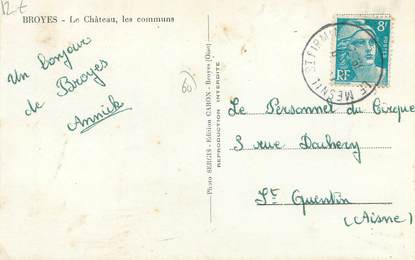 12 €
BROYES - Le Château, les communs
Un bonjour
de Broyes
Annick
60
Photo SERGIS - Edition CARON - Broyes (Oise)
REPRODUCTION INTERDITE
8F
POSTES
RF
LE MESNIL ST FIRMIN
Le Personnel du Cirque
3 rue Dachery
St Quentin
(Aisne)